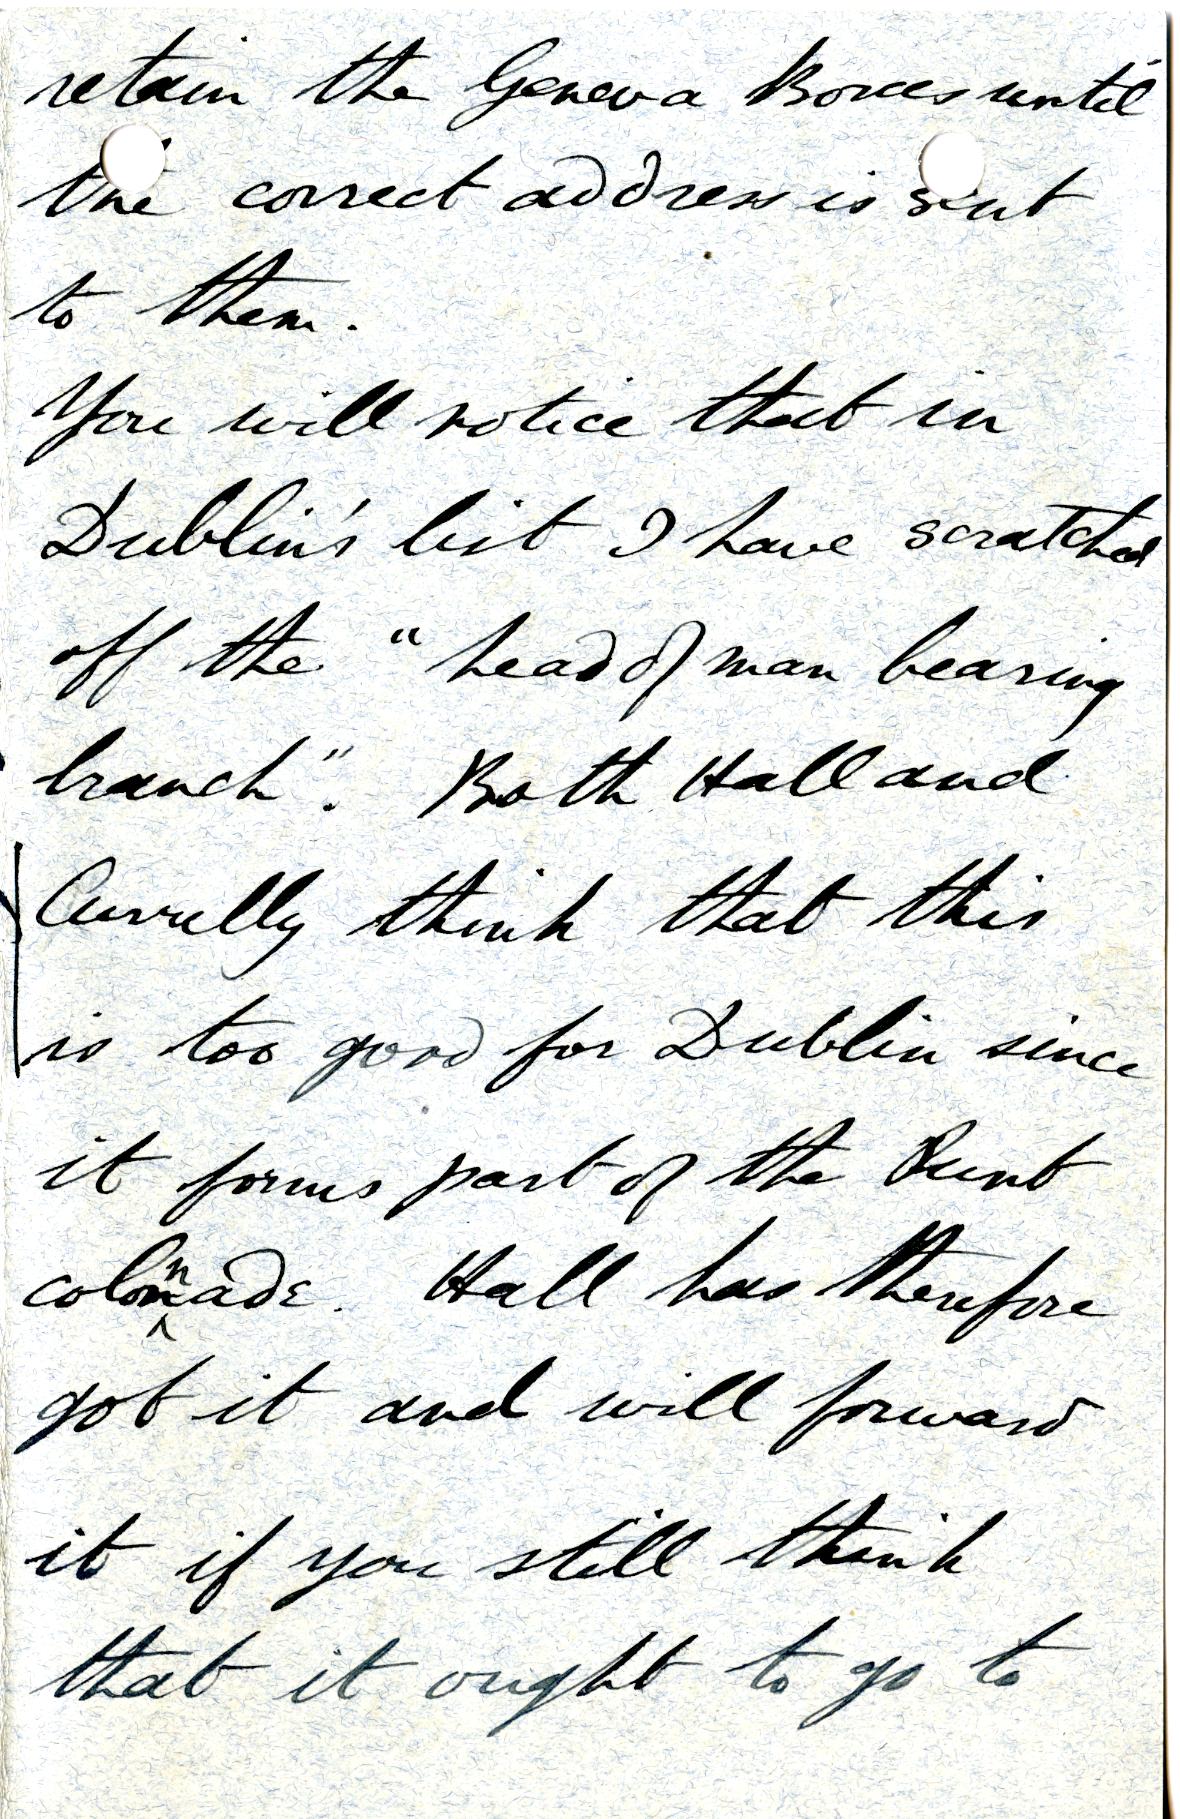 retain the Geneva Boxes until
the correct address is sent
to them.
You will notice that in
Dublin's list I have scratched
off the "head of man bearing
branch". Both Hall and
Currelly think that this
is too good for Dublin since
it forms part of the Punt
colonnade. Hall has therefore
got it and will forward
it if you still think
that it ought to go to